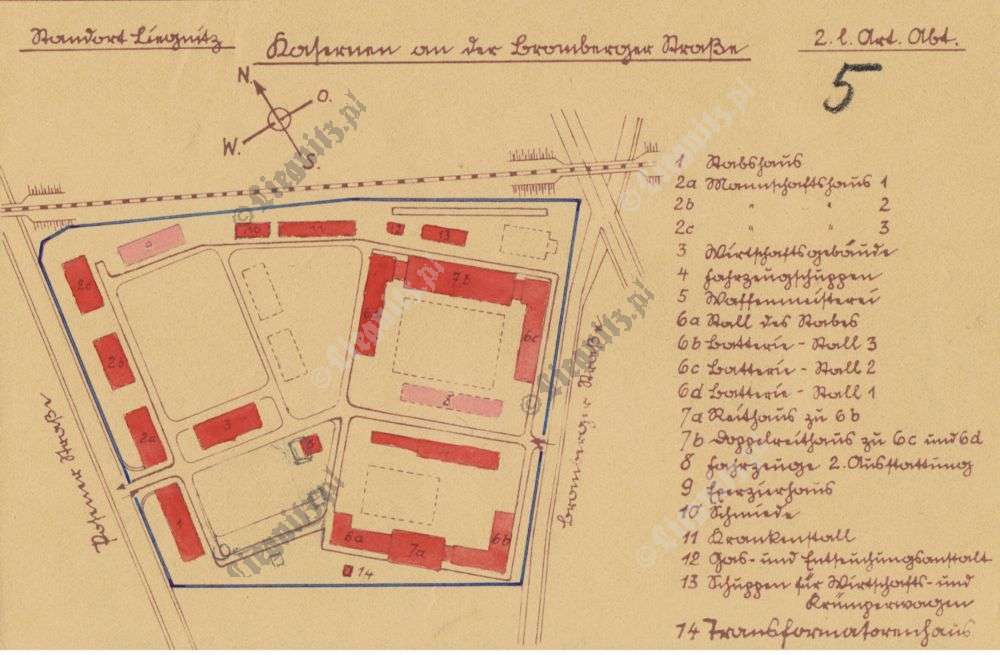 Standort Liegnitz
Kasernen an der Bromberger Straße
2. l. Art. Abt.
5
N.
O.
W.
S.
1 Stabshaus
2a Mannschaftshaus 1
2b " " 2
2c " " 3
3 Wirtschaftsgebäude
4 Fahrzeugschuppen
5 Waffenmeisterei
6a Stall des Stabes
6b Batterie - Stall 3
6c Batterie - Stall 2
6d Batterie - Stall 1
7a Reithaus zu 6b
7b Doppelreithaus zu 6c und 6d
8 Fahrzeuge 2. Ausstattung
9 Exerzierhaus
10 Schmiede
11 Krankenstall
12 Gas- und Entseuchungsanstalt
13 Schuppen für Wirtschafts- und
Krümperwagen
14 Transformatorenhaus
9
10
11
12
13
2c
2b
2a
3
5
1
6d
7b
6c
8
6a
7a
6b
14
Posener Straße
Bromberger Straße
© Liegnitz.pl
© Liegnitz.pl
© Liegnitz.pl
© Liegnitz.pl
© Liegnitz.pl
Liegnitz.pl